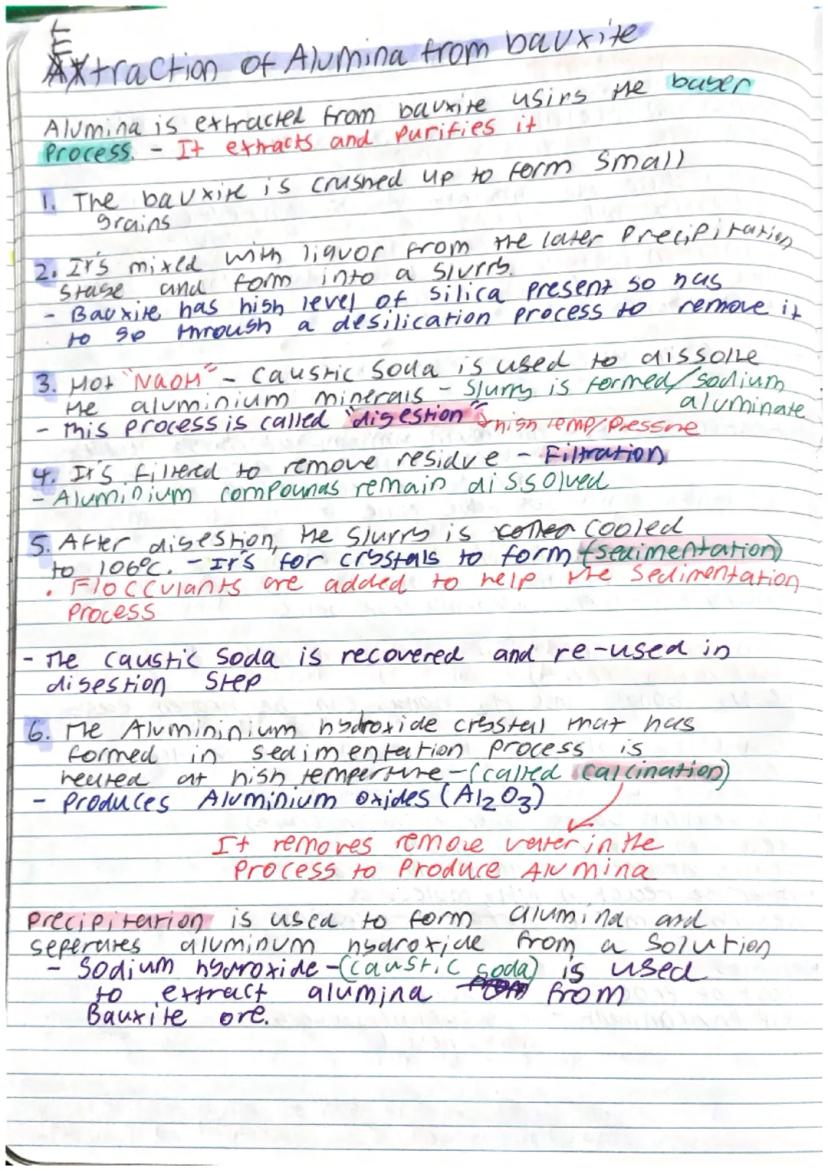 Extraction of Alumina from bauxite
Alumina is extracted from bauxite using the bayer
process. - It extracts and purifies it
1. The bauxite is crushed up to form small
grains
2. It's mixed with liquor from the later precipitation
stage and form into a slurry.
- Bauxite has high level of silica present so has
to go through a desilication process to remove it
3. Hot "NaOH" - caustic soda is used to dissolve
the aluminium minerals - slurry is formed/sodium
aluminate
- this process is called "digestion" high temp/pressure
4. It's filtered to remove residue - Filtration
- Aluminium compounds remain dissolved
5. After digestion, the slurry is cooled
to 106°C. - It's for crystals to form (sedimentation)
• Flocculants are added to help the sedimentation
process
- The caustic soda is recovered and re-used in
digestion step
6. The Alumininium hydroxide crystal that has
formed in sedimentation process is
heated at high temperture - (called calcination)
- produces Aluminium oxides (Al2O3)
It removes remove water in the
process to produce Alumina
precipitation is used to form alumina and
seperates aluminum hydroxide from a solution
- Sodium hydroxide - (caustic soda) is used
to extract alumina from
Bauxite ore.